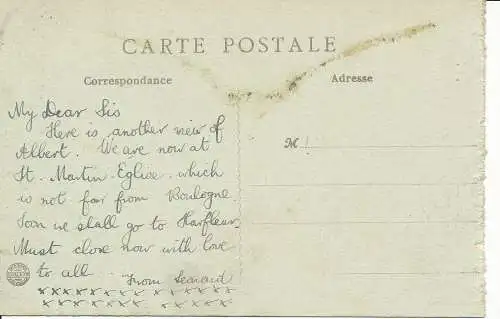 CARTE POSTALE
Correspondance
Adresse
My Dear Sis
Here is another view of
Albert. We are now at
St. Martin. Eglise. which
is not far from Boulogne.
Soon we shall go to Harfleur.
Must close now with love
to all.
From
x x x x x x x x x x x x
x x x x x x x x x x x
M